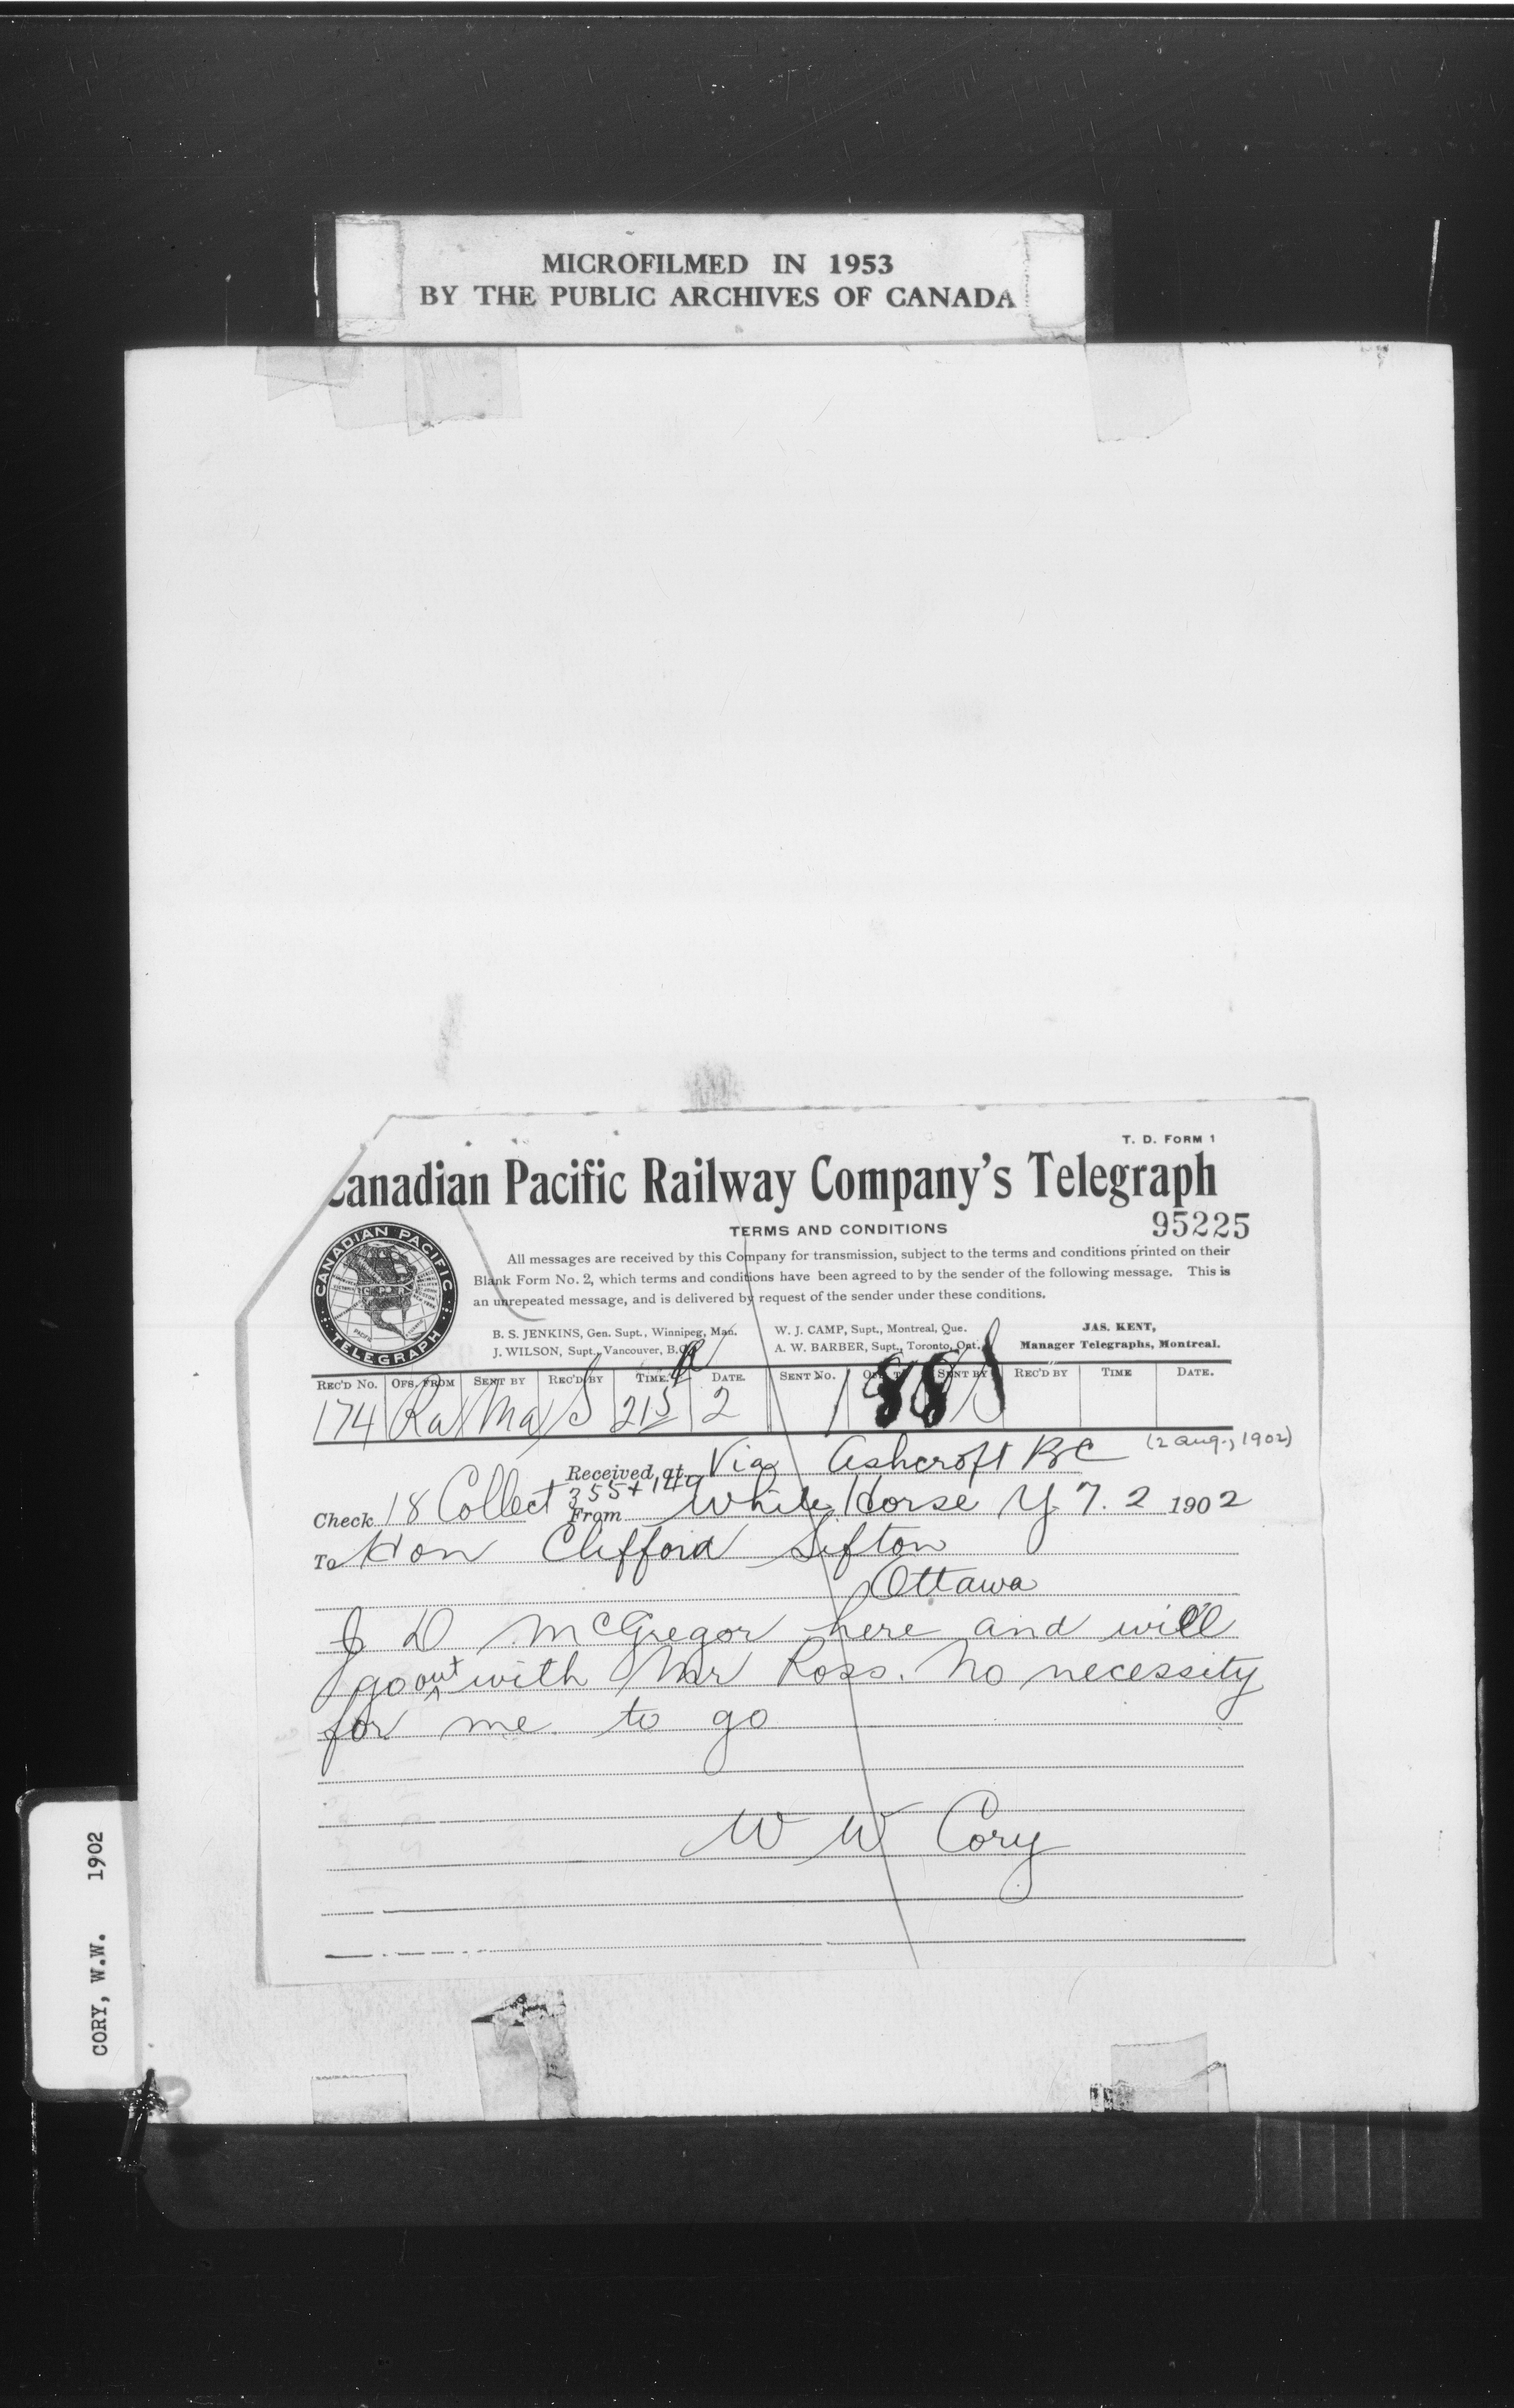 MICROFILMED IN 1953
BY THE PUBLIC ARCHIVES OF CANADA
T. D. FORM 1
Canadian Pacific Railway Company's Telegraph
TERMS AND CONDITIONS
95225
All messages are received by this Company for transmission, subject to the terms and conditions printed on their
Blank Form No. 2, which terms and conditions have been agreed to by the sender of the following message. This is
an unrepeated message, and is delivered by request of the sender under these conditions.
CANADIAN PACIFIC
TELEGRAPH
B. S. JENKINS, Gen. Supt., Winnipeg, Man.
J. WILSON, Supt., Vancouver, B.C.
W. J. CAMP, Supt., Montreal, Que.
A. W. BARBER, Supt., Toronto, Ont.
JAS. KENT,
Manager Telegraphs, Montreal.
REC'D NO. OFS. FROM SENT BY REC'D BY TIME. DATE. SENT NO. SENT BY REC'D BY TIME DATE.
174 Ra Ma S 215 2 88
(2 Aug., 1902)
Received at Via Ashcroft BC
355+149
Check 18 Collect From White Horse Y.T. 2 1902
To Hon Clifford Sifton
Ottawa
J D McGregor here and will
go out with Mr Ross. No necessity
for me to go
W W Cory
CORY, W.W. 1902